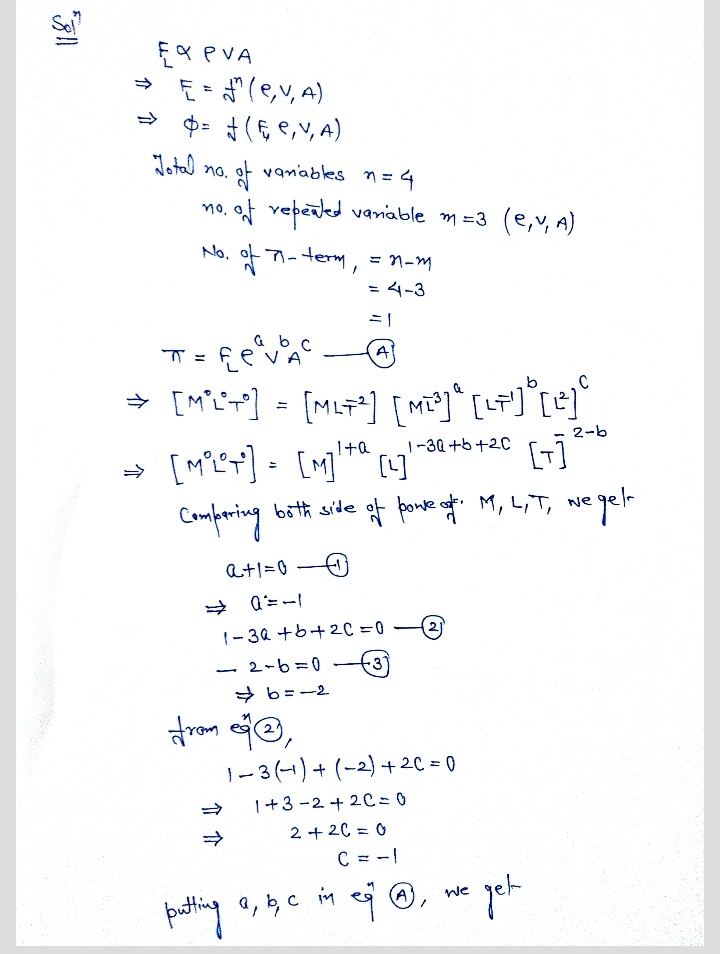 Solⁿ
F_L ∝ ρ V A
⇒ F_L = fⁿ (ρ, V, A)
⇒ φ = f (F_L, ρ, V, A)
Total no. of variables n = 4
no. of repeated variable m = 3 (ρ, V, A)
No. of π - term, = n-m
= 4-3
= 1
π = F_L ρ^a V^b A^c — (A)
⇒ [M⁰L⁰T⁰] = [MLT⁻²] [ML⁻³]^a [LT⁻¹]^b [L²]^c
⇒ [M⁰L⁰T⁰] = [M]^(1+a) [L]^(1-3a+b+2c) [T]^(-2-b)
Comparing both side of power of. M, L, T, we get
a+1=0 — (1)
⇒ a = -1
1-3a+b+2c=0 — (2)
-2-b=0 — (3)
⇒ b = -2
from eqⁿ (2),
1-3(-1) + (-2) + 2c = 0
⇒ 1+3-2+2c = 0
⇒ 2+2c = 0
c = -1
putting a, b, c in eqⁿ (A), we get